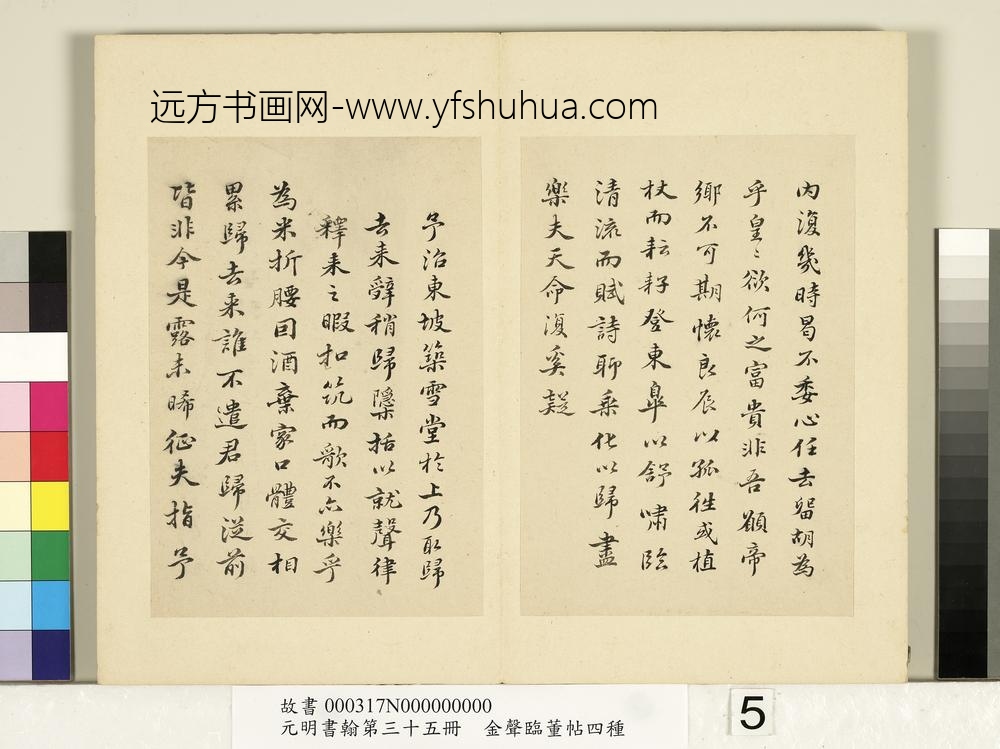 远方书画网-www.yfshuhua.com
内復幾時曷不委心任去留胡為
乎皇〻欲何之富貴非吾願帝
鄉不可期懷良辰以孤往或植
杖而耘耔登東皋以舒嘯臨
清流而賦詩聊乘化以歸盡
樂夫天命復奚疑
予治東坡築雪堂於上乃取歸
去来辭稍歸隱括以就聲律
釋耒之暇扣筑而歌不亦樂乎
為米折腰回酒棄家口體交相
累歸去来誰不遣君歸從前
皆非今是露未晞征夫指予
故書 000317N000000000
元明書翰第三十五冊 金聲臨董帖四種
5